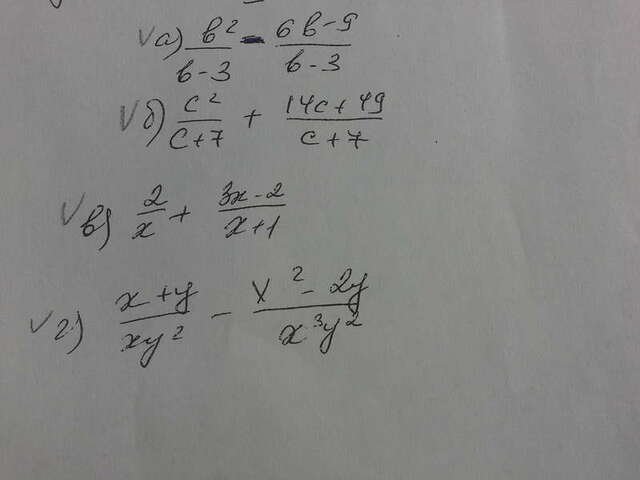 √а) в²/(в-3) - (6в-9)/(в-3)
√б) c²/(c+7) + (14c+49)/(c+7)
√в) 2/x + (3x-2)/(x+1)
√г) (x+y)/(xy²) - (x²-2y)/(x³y²)